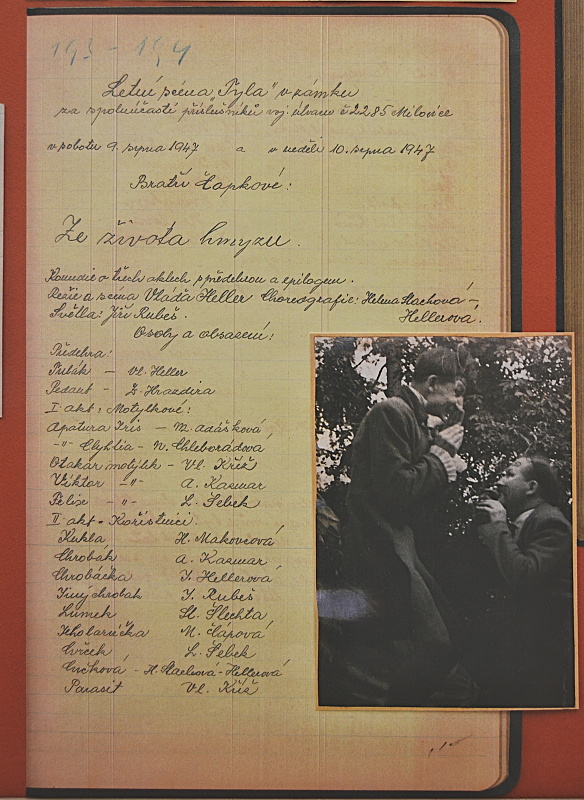 193 - 194
Letní scéna „Tyla" v zámku
za spoluúčasti příslušníků voj. útvaru č 2285 Milovice
v sobotu 9. srpna 1947 a v neděli 10. srpna 1947
Bratři Čapkové:
Ze života hmyzu.
Komedie o třech aktech s předehrou a epilogem.
Režie a scéna Vláďa Heller Choreografie: Helena Stachová-
Hellerová.
Světla: Jiří Rubeš.
Osoby a obsazení:
Předehra:
Tulák - Vl. Heller
Pedant - Z. Hrazdira
I. akt: Motýlkové:
Apatura Iris - M. Adášková
-"- Clythia - N. Chleborádová
Otakar motýlek - Vl. Kříž
Viktor -"- A. Kasmar
Felix -"- L. Šebek
II. akt - Kořistníci.
Kukla H. Makovcová
Chrobák A. Kasmar
Chrobačka J. Hellerová
Jiný chrobák J. Rubeš
Lumek Sl. Šlechta
M. Čápová
Cvrček L. Šebek
Cvrčková - H. Stachová-Hellerová
Parasit Vl. Kříž